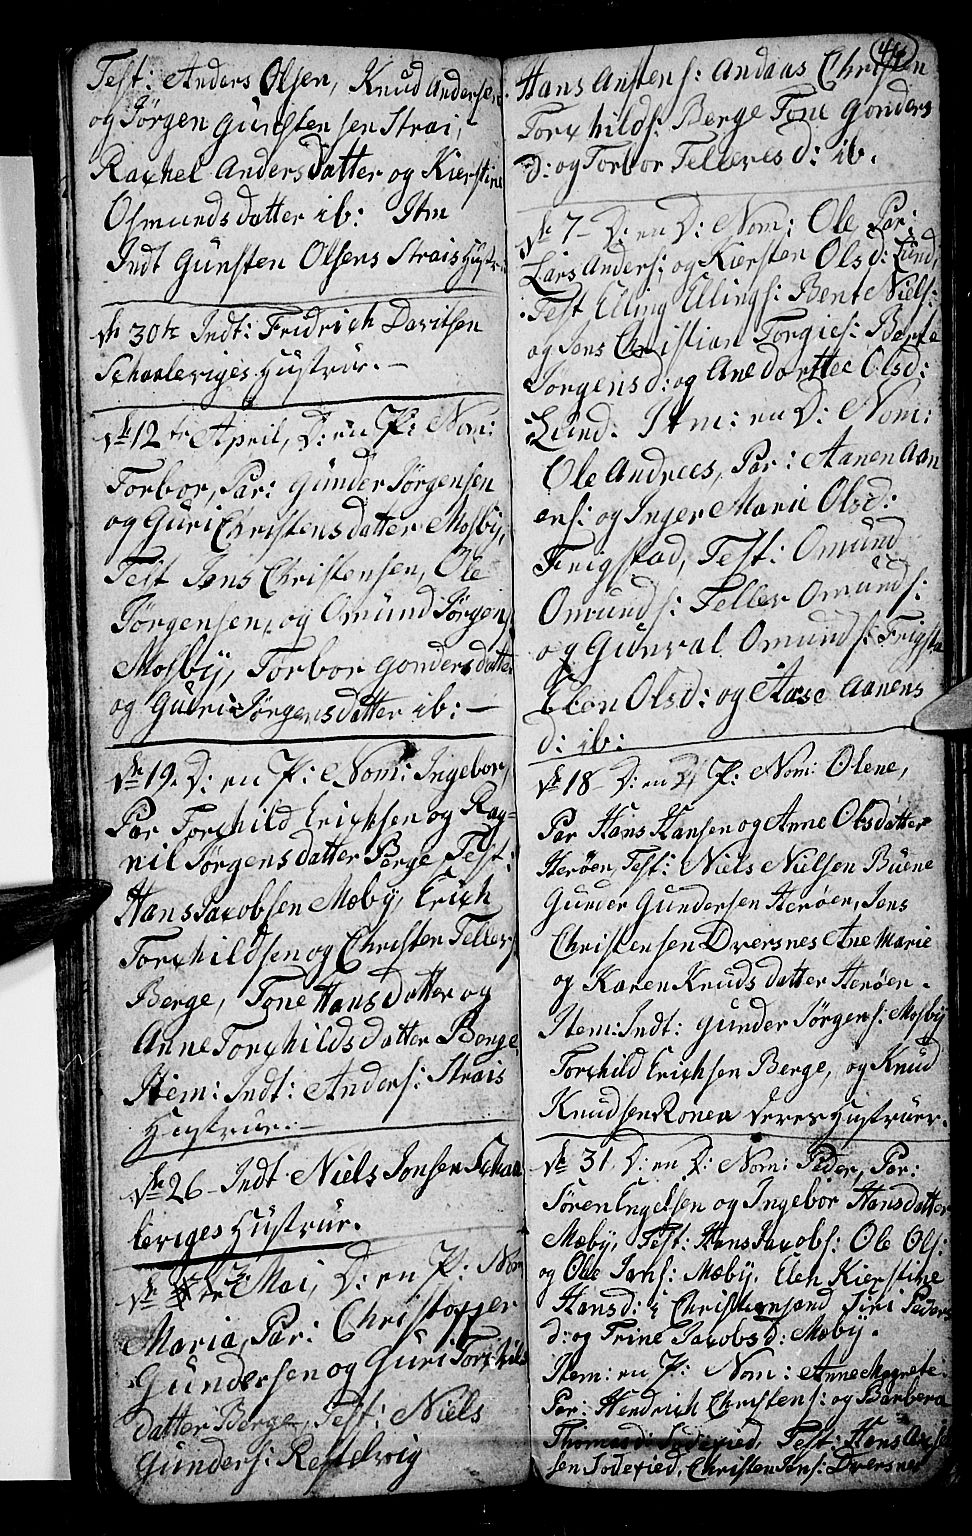 Test: Anders Olsen, Knud Andersen
og Jørgen Gunsten sen Strai,
Rachel Anders Datter og Kierstine
Osmunds datter ib: Itm
Indt Gunsten Olsens Strais Hustr:
dn 30te Indt: Fridrich Davitsen
Schaaleviges Hustrur. —
dn 12te April, D: en P: Nom:
Torbor, Par: Gunder Jørgensen
og Guri Christensdatter Mosby,
Test Jens Christensen, Ole
Jørgensen, og Omund Jørgens:
Mosby, Torbor Gondersdatter
og Guri Jørgensdatter ib: —
dn 19. D: en P: Nom: Ingebor,
Par Torchild Erichsen og Rag-
nil Jørgensdatter Berge, Test:
Hans Jacobsen Mæby, Erich
Torchildsen og Christen Tellefs:
Berge, Tone Hansdatter og
Anne Torchildsdatter Berge
Item: Indt: Anders: Strais
Hustrur. —
dn 26 Indt Niels Jonsen Schaa
leviges Hustrur.
dn Mai, D: en P: Nom
Maria, Par: Christopper
Gundersen og Guri Torchilds
datter Berge, Test: Niels
Gunders: Reffelsvig
44
Hans Anstens: Andaas Christen
Torchilds: Berge Tone Gonders
D: og Torbor Tellevesd: ib.
dn 7 — D: en D: Nom: Ole, Par:
Lars Anders: og Kiersten Olsd: Lund,
Test Elling Ellings: Bent Niels:
og Jens Christian Torgies: Berte
Jørgensd: og Ane dorttee Olsd:
Lund: Itm: en D: Nom:
Ole Andrees, Par: Aanen Aan
ens: og Inger Marie Olsd:
Frigstad, Test: Omund
Omunds: Tellef Omunds:
og Gunval Omunds: Frigsta
Elen Olsd: og Aase Aanens
d: ib:
dn 18 — D: en P: Nom: Olene,
Par Hans Hansen og Anne Olsdatter
Herøen, Test: Niels Nielsen Buene
Gunder Gundersen Herøen, Jens
Christensen Dversnes Ane Marie
og Karen Knudsdatter Herøen.
Item: Indt: Gunder Jørgens: Mosby
Torchild Erichsen Berge, og Knud
Knudsen Ronea deres Hustruer.
dn 31 D: en D: Nom: Peder, Par:
Søren Engelsen og Ingebor Hansdatter
Mæby, Test: Hans Jacobs: Ole Ols:
og Ole Jans: Mæby. Elen Kierstine
Hansd: i Christiansand Siri Peders
d: og Trine Jacobsd: Mæby.
Item: en P: Nom: Anne Magrete:
Par: Hendrich Christens: og Barbera
Thomasd: Todefied, Test: Hans
sen Todefied, Christen Jens: Dversnes